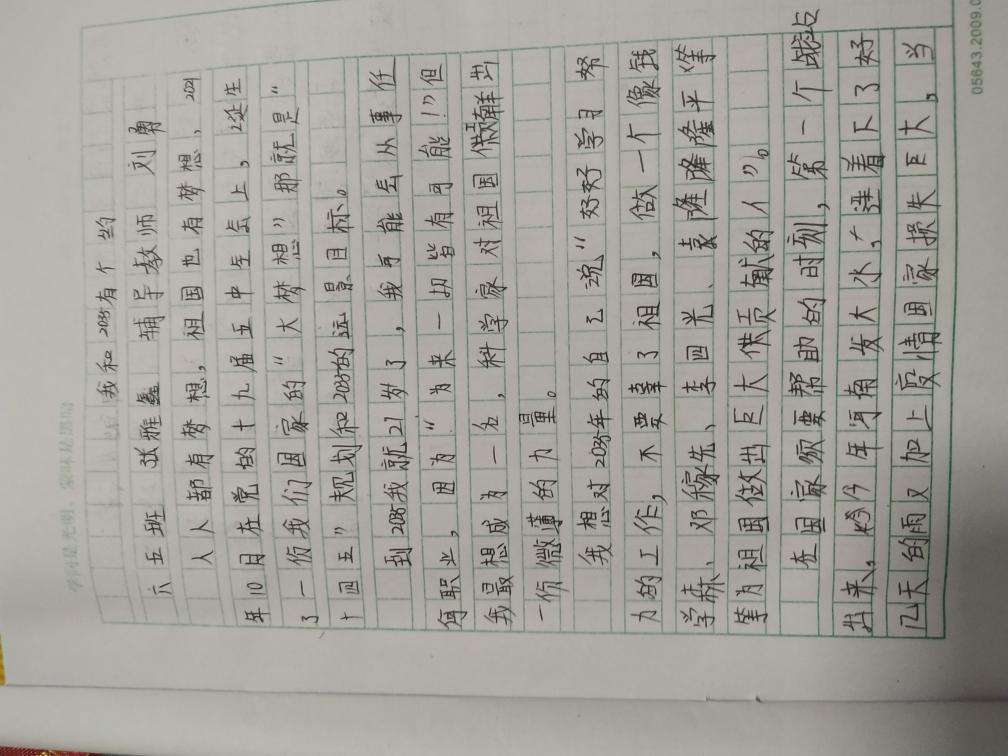 我和2035有个约
六五班 张雅鑫 辅导教师 刘勇
人人都有梦想，祖国也有梦想，2021
年10月在党的十九届五中全会上，诞生
了一份我们国家的“大梦想”那就是“
十四五”规划和2035的远景目标。
到2035我就21岁了，我可能会从事任
何职业，因为“为来一切皆有可能！”但
我最想成为一名，科学家对祖国供献出
一份微薄的力量。
我想对2035年的自己说“好好学习努
力的工作，不要辜了祖国，做一个像钱
学森、邓稼先、李四光、袁隆隆隆平等
等为祖国做出巨大供贡献的人”。
在国家须要帮助的时刻，第一个战站
出来。今年河南发大水，连着下了好
几天的雨又加上疫情国家损失巨大，当
05643.2009.0